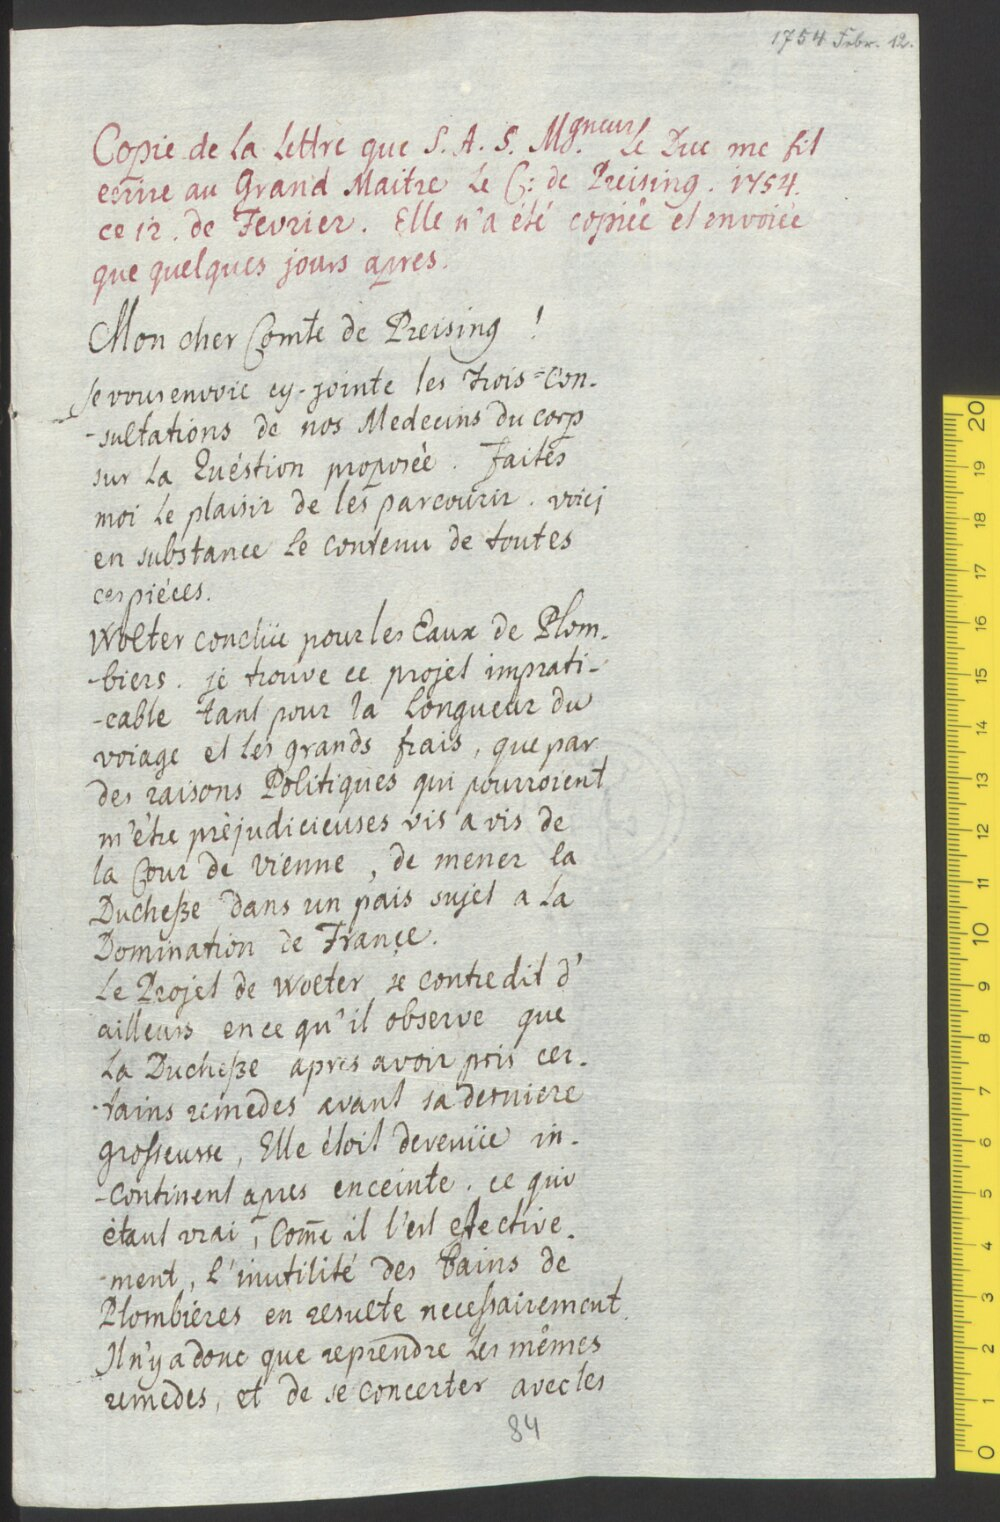 1754 Febr. 12.
Copie de La Lettre que S. A. S. Mgneur. Le Duc me fit
ecrire au Grand Maitre Le C: de Preising. 1754.
ce 12. de Fevrier. Elle n'a été copiée et envoiée
que quelques jours apres.
Mon cher Comte de Preising !
Je vous envoie cy-jointe les trois=Con-
-sultations de nos Medecins du corp
sur La Quéstion proposée. Faites
moi Le plaisir de les parcourir. voici
en substance Le contenu de toutes
ces piéces.
Wolter conclüe pour les Eaux de Plom-
-biers. je trouve ce projet imprati-
-cable tant pour la Longueur du
voiage et les grands frais, que par
des raisons Politiques qui pourroient
m'être préjudicieuses vis a vis de
la Cour de Vienne, de mener la
Ducheße dans un païs sujet a La
Domination de Françe.
Le Projet de Wolter se contredit d'
ailleurs en ce qu'il observe que
La Ducheße apres avoir pris cer-
-tains remedes avant sa derniere
grosseusse, Elle étoit devenüe in-
-continent apres enceinte. ce qui
étant vrai, Com̄e il l'est efective-
-ment, L'inutilité des Bains de
Plombiéres en resulte necessairement.
Il n'y a donc que reprendre Les mêmes
remedes, et de se concerter avec les
84
20
19
18
17
16
15
14
13
12
11
10
9
8
7
6
5
4
3
2
1
0